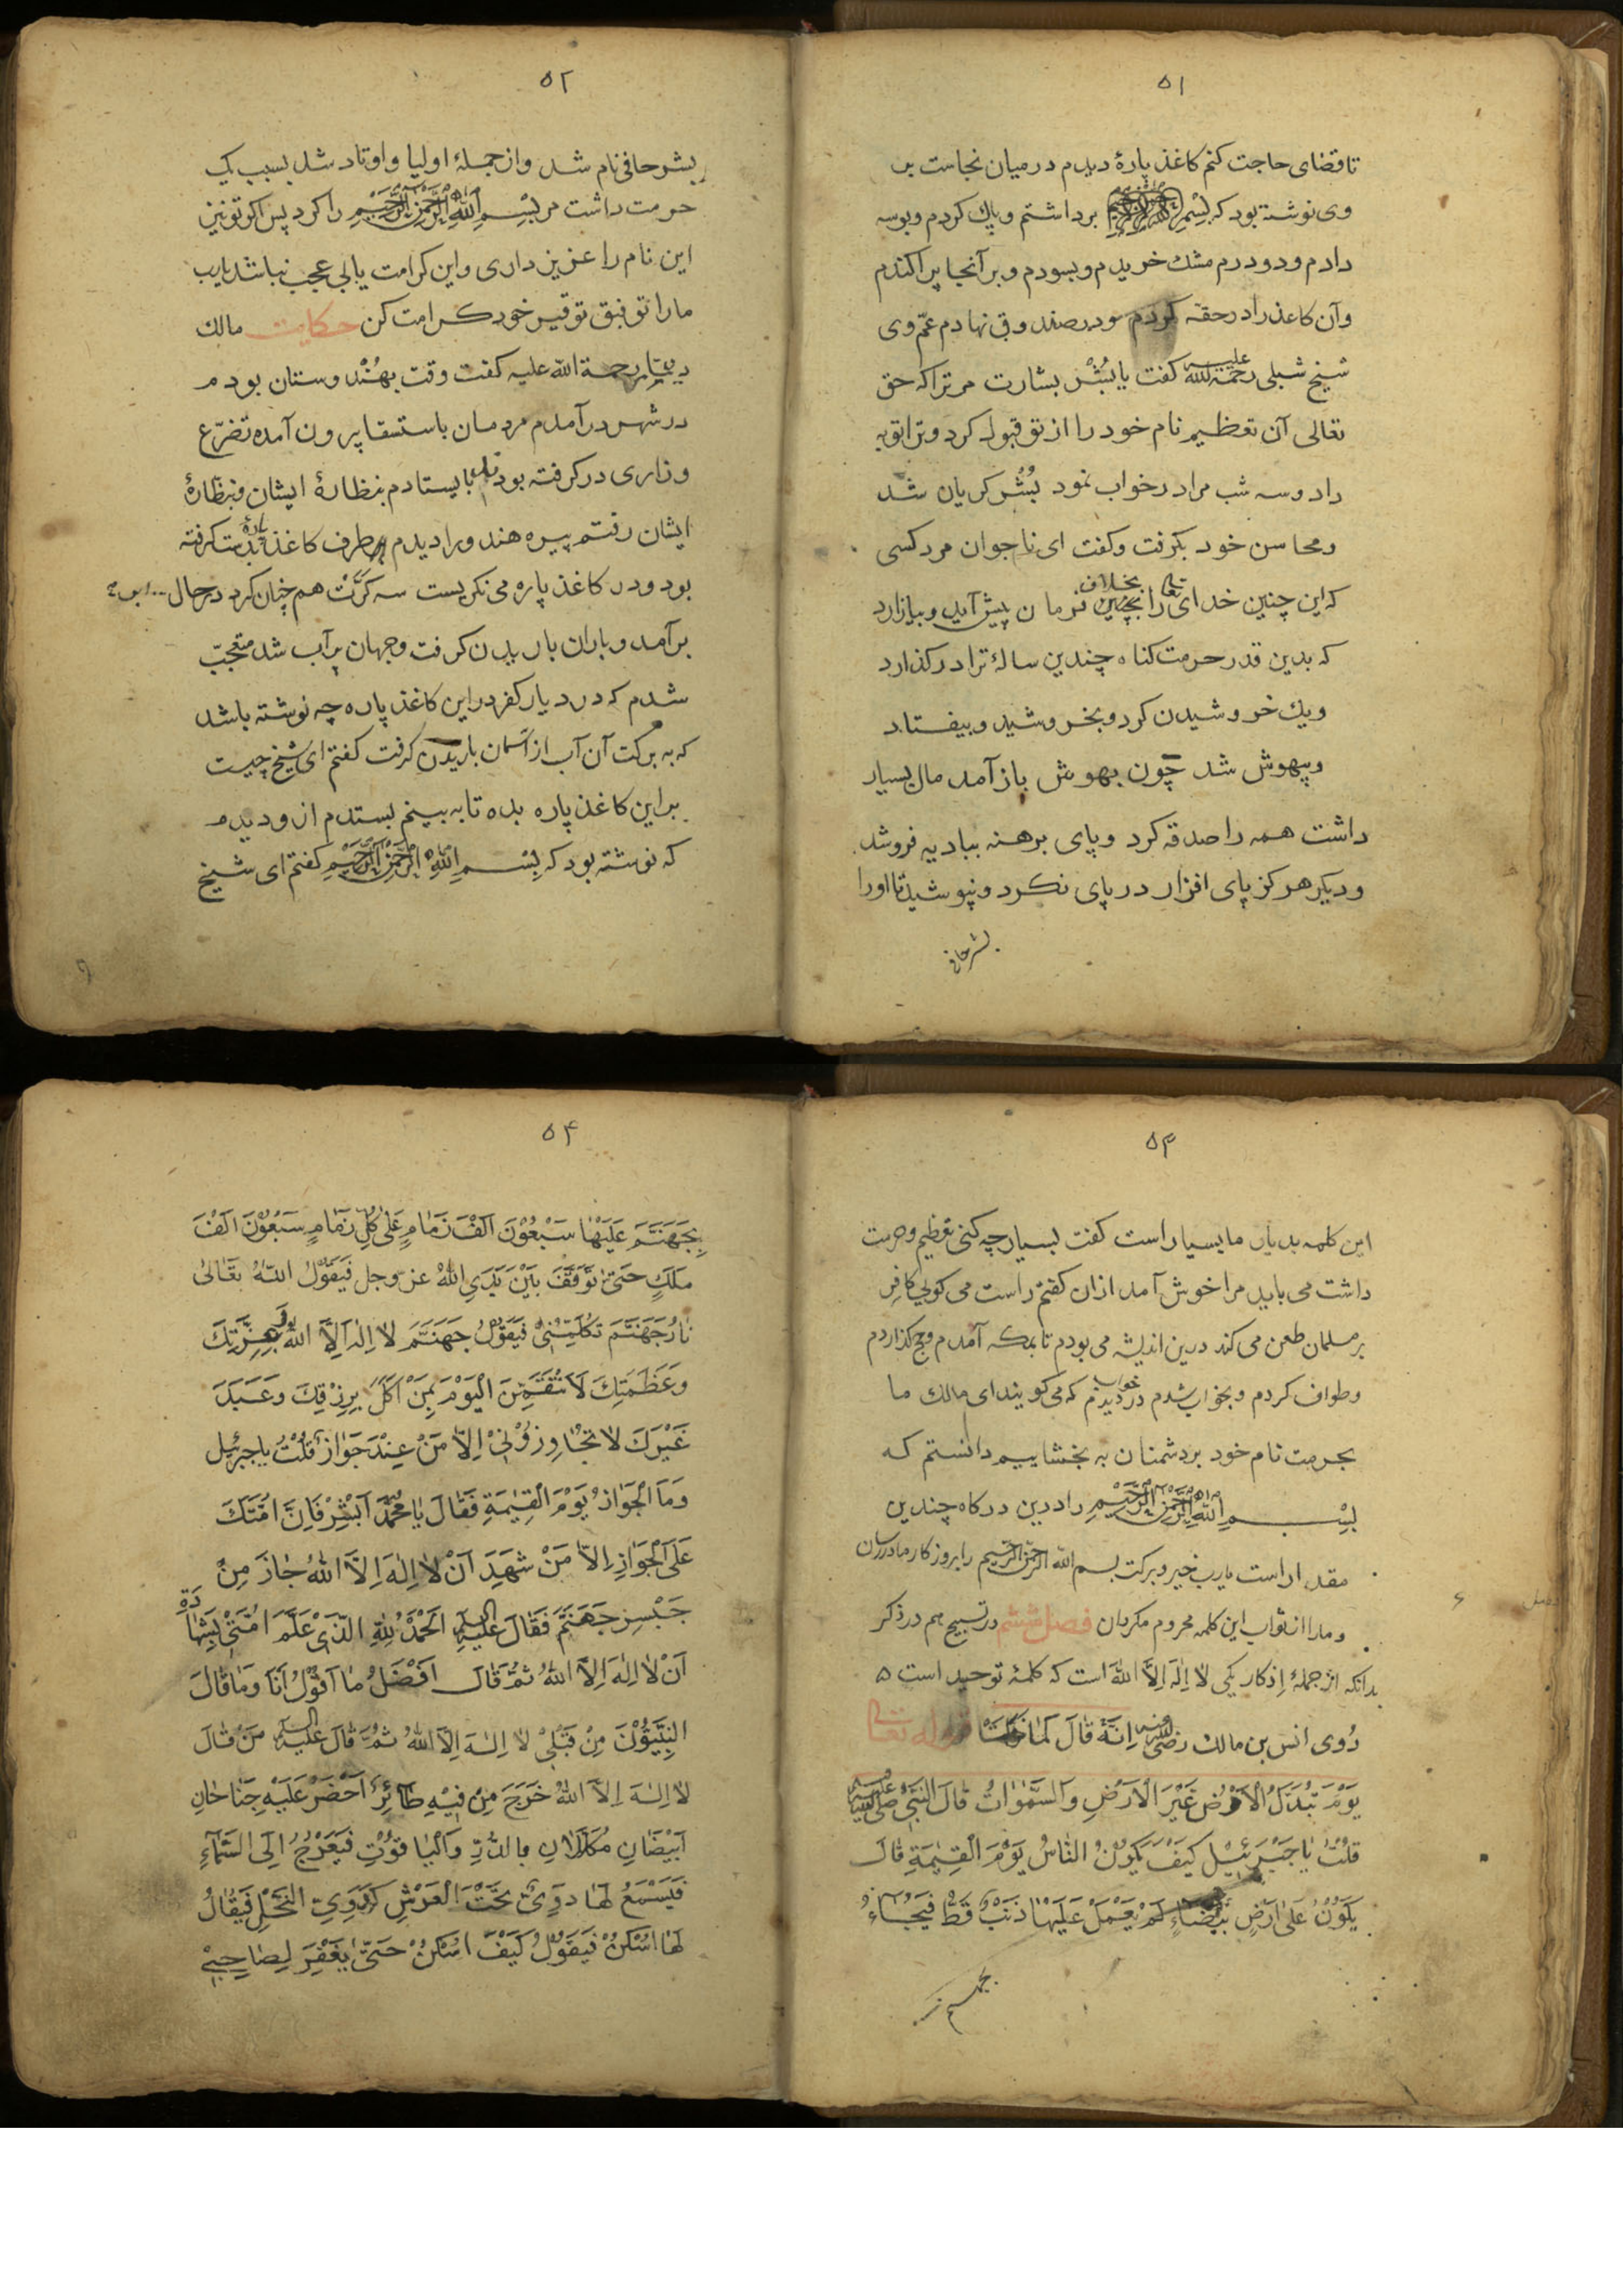 ۵۱
تا قضای حاجت کنم کاغذ پارهٔ دیدم در میان نجاست بر
وی نوشته بود که بِسْمِ اللّٰهِ الرَّحْمٰنِ الرَّحِیْمِ برداشتم و پاک کردم و بوسه
دادم و دو درم مشک خریدم و بسودم و بر آنجا پراکندم
و آن کاغذ را در حقه کردم و در صندوقی نهادم عمّ وی
شیخ شبلی رحمة الله علیه کفت یا بُشْر بشارت مر ترا که حق
تعالی آن تعظیم نام خود را از تو قبول کرد و ترا توبه
داد و سه شب مرا در خواب نمود بُشْر کریان شد
و محاسن خود بکرفت و کفت ای ناجوان مرد کسی
که این چنین خدای تعا را بخلاف فرمان پیش آید و بیازارد
که بدین قدر حرمت کناه چندین سالهٔ ترا در کذارد
ویک خروشیدن کرد و بخروشید و بیفتاد
و بیهوش شد چون بهوش باز آمد مال بسیار
داشت همه را صدقه کرد و پای برهنه ببادیه فروشد
و دیکر هرکز پای افزار در پای نکرد و نپوشید تا اورا
بشر حافی
۵۲
بشر حافی نام شد و از جملهٔ اولیا و اوتاد شد بسبب یک
حرمت داشت مر بِسْمِ اللّٰهِ الرَّحْمٰنِ الرَّحِیْمِ را کرد پس اکر تو نیز
این نام را عزیز داری و این کرامت یابی عجب نباشد یارب
ما را توفیق توقیر خود کرامت کن حکایت مالک
دینار رحمة الله علیه کفت وقتی بهُنْدوستان بودم
در شهر در آمدم مردمان باستسقا برون آمده تضرّع
و زاری در کرفته بود بایستادم بنظارهٔ ایشان و بنظارهٔ
ایشان رفتم پیره هندو را دیدم بر طرف کاغذ پارهٔ بدست کرفته
بود و در کاغذ پاره می نکریست سه کرَّت هم چنان کرد در حال ابر
برآمد و باران باریدن کرفت و جهان پر آب شد متعجّب
شدم که در دیار کفر در این کاغذ پاره چه نوشته باشد
که به برکت آن آب از آسمان باریدن کرفت کفتم ای شیخ چیست
بر این کاغذ پاره بده تا به بینم بستدم از و دیدم
که نوشته بود که بِسْمِ اللّٰهِ الرَّحْمٰنِ الرَّحِیْمِ کفتم ای شیخ
۵۳
این کلمه بدیار ما بسیار است کفت بسیار چه کنی تعظیم و حرمت
داشت می باید مرا خوش آمد از ان کفتم راست می کوئی کافر
بر مسلمان طعن می کند درین اندیشه می بودم تا بمکه آمدم و حج کذاردم
و طواف کردم و بخواب شدم در خواب دیدم که می کویند ای مالک ما
بحرمت نام خود بر دشمنان به بخشاییم دانستم که
بِسْمِ اللّٰهِ الرَّحْمٰنِ الرَّحِیْمِ را درین درکاه چندین
مقدار است یارب خیر و برکت بسم الله الرحمن الرحیم را بروزکار ما در رسان
و ما را از ثواب این کلمه محروم مکردان فصل ششم در تسبیح هم در ذکر
بدانکه از جملهٔ اِذکار یکی لا اِلٰهَ اِلاَّ اللّٰه است که کلمهٔ توحید است ۵
رُوی انس بن مالک رضی الله عنه اِنَّهُ قَالَ لَمَّا نزلت قوله تعالی
یَوْمَ تُبَدَّلُ الْاَرْضُ غَیْرَ الْاَرْضِ وَالسَّمٰوٰاتُ قَالَ النَّبِیُّ صلی الله علیه
قُلْتُ یٰا جَبْرَئِیْلُ کَیْفَ یَکُوْنُ النّٰاسُ یَوْمَ الْقِیٰمَةِ قَالَ
یَکُوْنُ عَلٰی اَرْضٍ بَیْضَاءَ لَمْ یَعْمَلْ عَلَیْهٰا ذَنْبٌ قَطُّ فَیُجَاءُ
بجهنم
۵۴
بِجَهَنَّمَ عَلَیْهٰا سَبْعُوْنَ اَلْفَ زَمٰامٍ عَلٰی کُلِّ زَمٰامٍ سَبْعُوْنَ اَلْفَ
مَلَکٍ حَتّٰی تُوَقَّفَ بَیْنَ یَدَیِ اللّٰهُ عز وجل فَیَقُوْلُ اللّٰهُ تَعَالٰی
نٰارُ جَهَنَّمَ تَکَلَّمِیْنِیْ فَیَقُوْلُ جَهَنَّمَ لاٰ اِلٰهَ اِلاَّ اللّٰهُ بِعِزَّتِکَ
وَعَظَمَتِکَ لَاَنْتَقِمَنَّ الْیَوْمَ مِمَّنْ اَکَلَ بِرِزْقِکَ وَعَبَدَ
غَیْرَکَ لاٰ تَجٰاوِزُوْنِیْ اِلاَّ مَنْ عِنْدَ جَوٰازٍ قُلْتُ یا جبرئیل
وَمَا الْجَوٰازُ یَوْمَ الْقِیٰمَةِ فَقَالَ یٰا مُحَمَّدُ اَبْشِرْ فَاِنَّ اُمَّتَکَ
عَلَی الْجَوٰازِ اِلاّٰ مَنْ شَهِدَ اَنْ لاٰ اِلٰهَ اِلاَّ اللّٰهُ جٰازَ مِنْ
جَبْسِرِ جَهَنَّمَ فَقَالَ علیه السلم اَلْحَمْدُ لِلّٰهِ الَّذِیْ عَلَّمَ اُمَّتِیْ بِشَهٰادَةِ
اَنْ لاٰ اِلٰهَ اِلاَّ اللّٰهُ ثُمَّ قَالَ اَفْضَلُ مٰا اَقُوْلُ اَنَا وَمٰا قٰالَ
النَّبِیُّوْنَ مِنْ قَبْلِیْ لاٰ اِلٰهَ اِلاَّ اللّٰهُ ثُمَّ قَالَ علیه السلم مَنْ قٰالَ
لاٰ اِلٰهَ اِلاَّ اللّٰهُ خَرَجَ مِنْ فِیْهِ طٰائِرٌ اَخْضَرُ عَلَیْهِ جَنٰاحٰانِ
اَبْیَضَانِ مُکَلَّلاٰنِ بِالدُّرِّ وَالْیٰاقُوْتِ فَیَعْرُجُ اِلَی السَّمٰاءِ
فَیَسْمَعُ لَهٰا دَوِیٌّ تَحْتَ الْعَرْشِ کَدَوِیِّ النَّحْلِ فَیُقٰالُ
لَهٰا اسْکُنْ فَیَقُوْلُ کَیْفَ اَسْکُنُ حَتّٰی یَغْفِرَ لِصٰاحِبِیْ